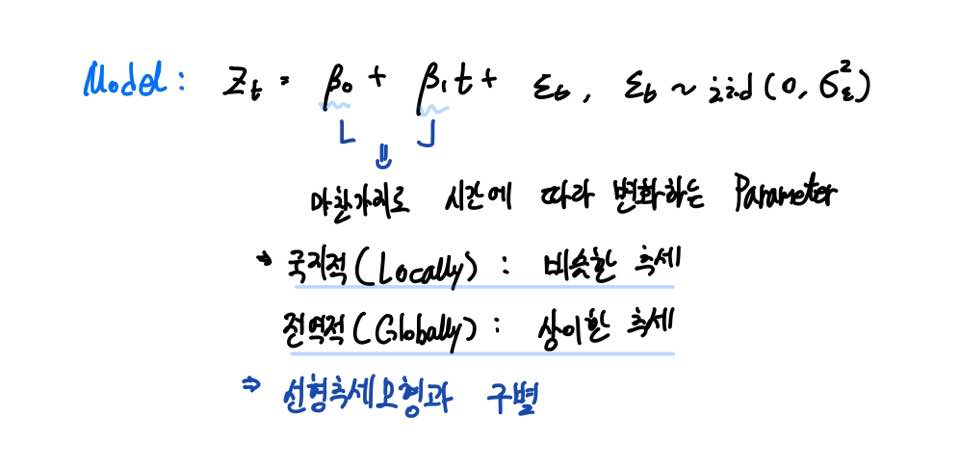 Model: Z_t = β₀ + β₁t + ε_t, ε_t ~ iid(0, σ_ε²)
⇓
마찬가지로 시간에 따라 변화하는 Parameter
→ 국지적(Locally) : 비슷한 추세
전역적(Globally) : 상이한 추세
⇒ 선형추세모형과 구별